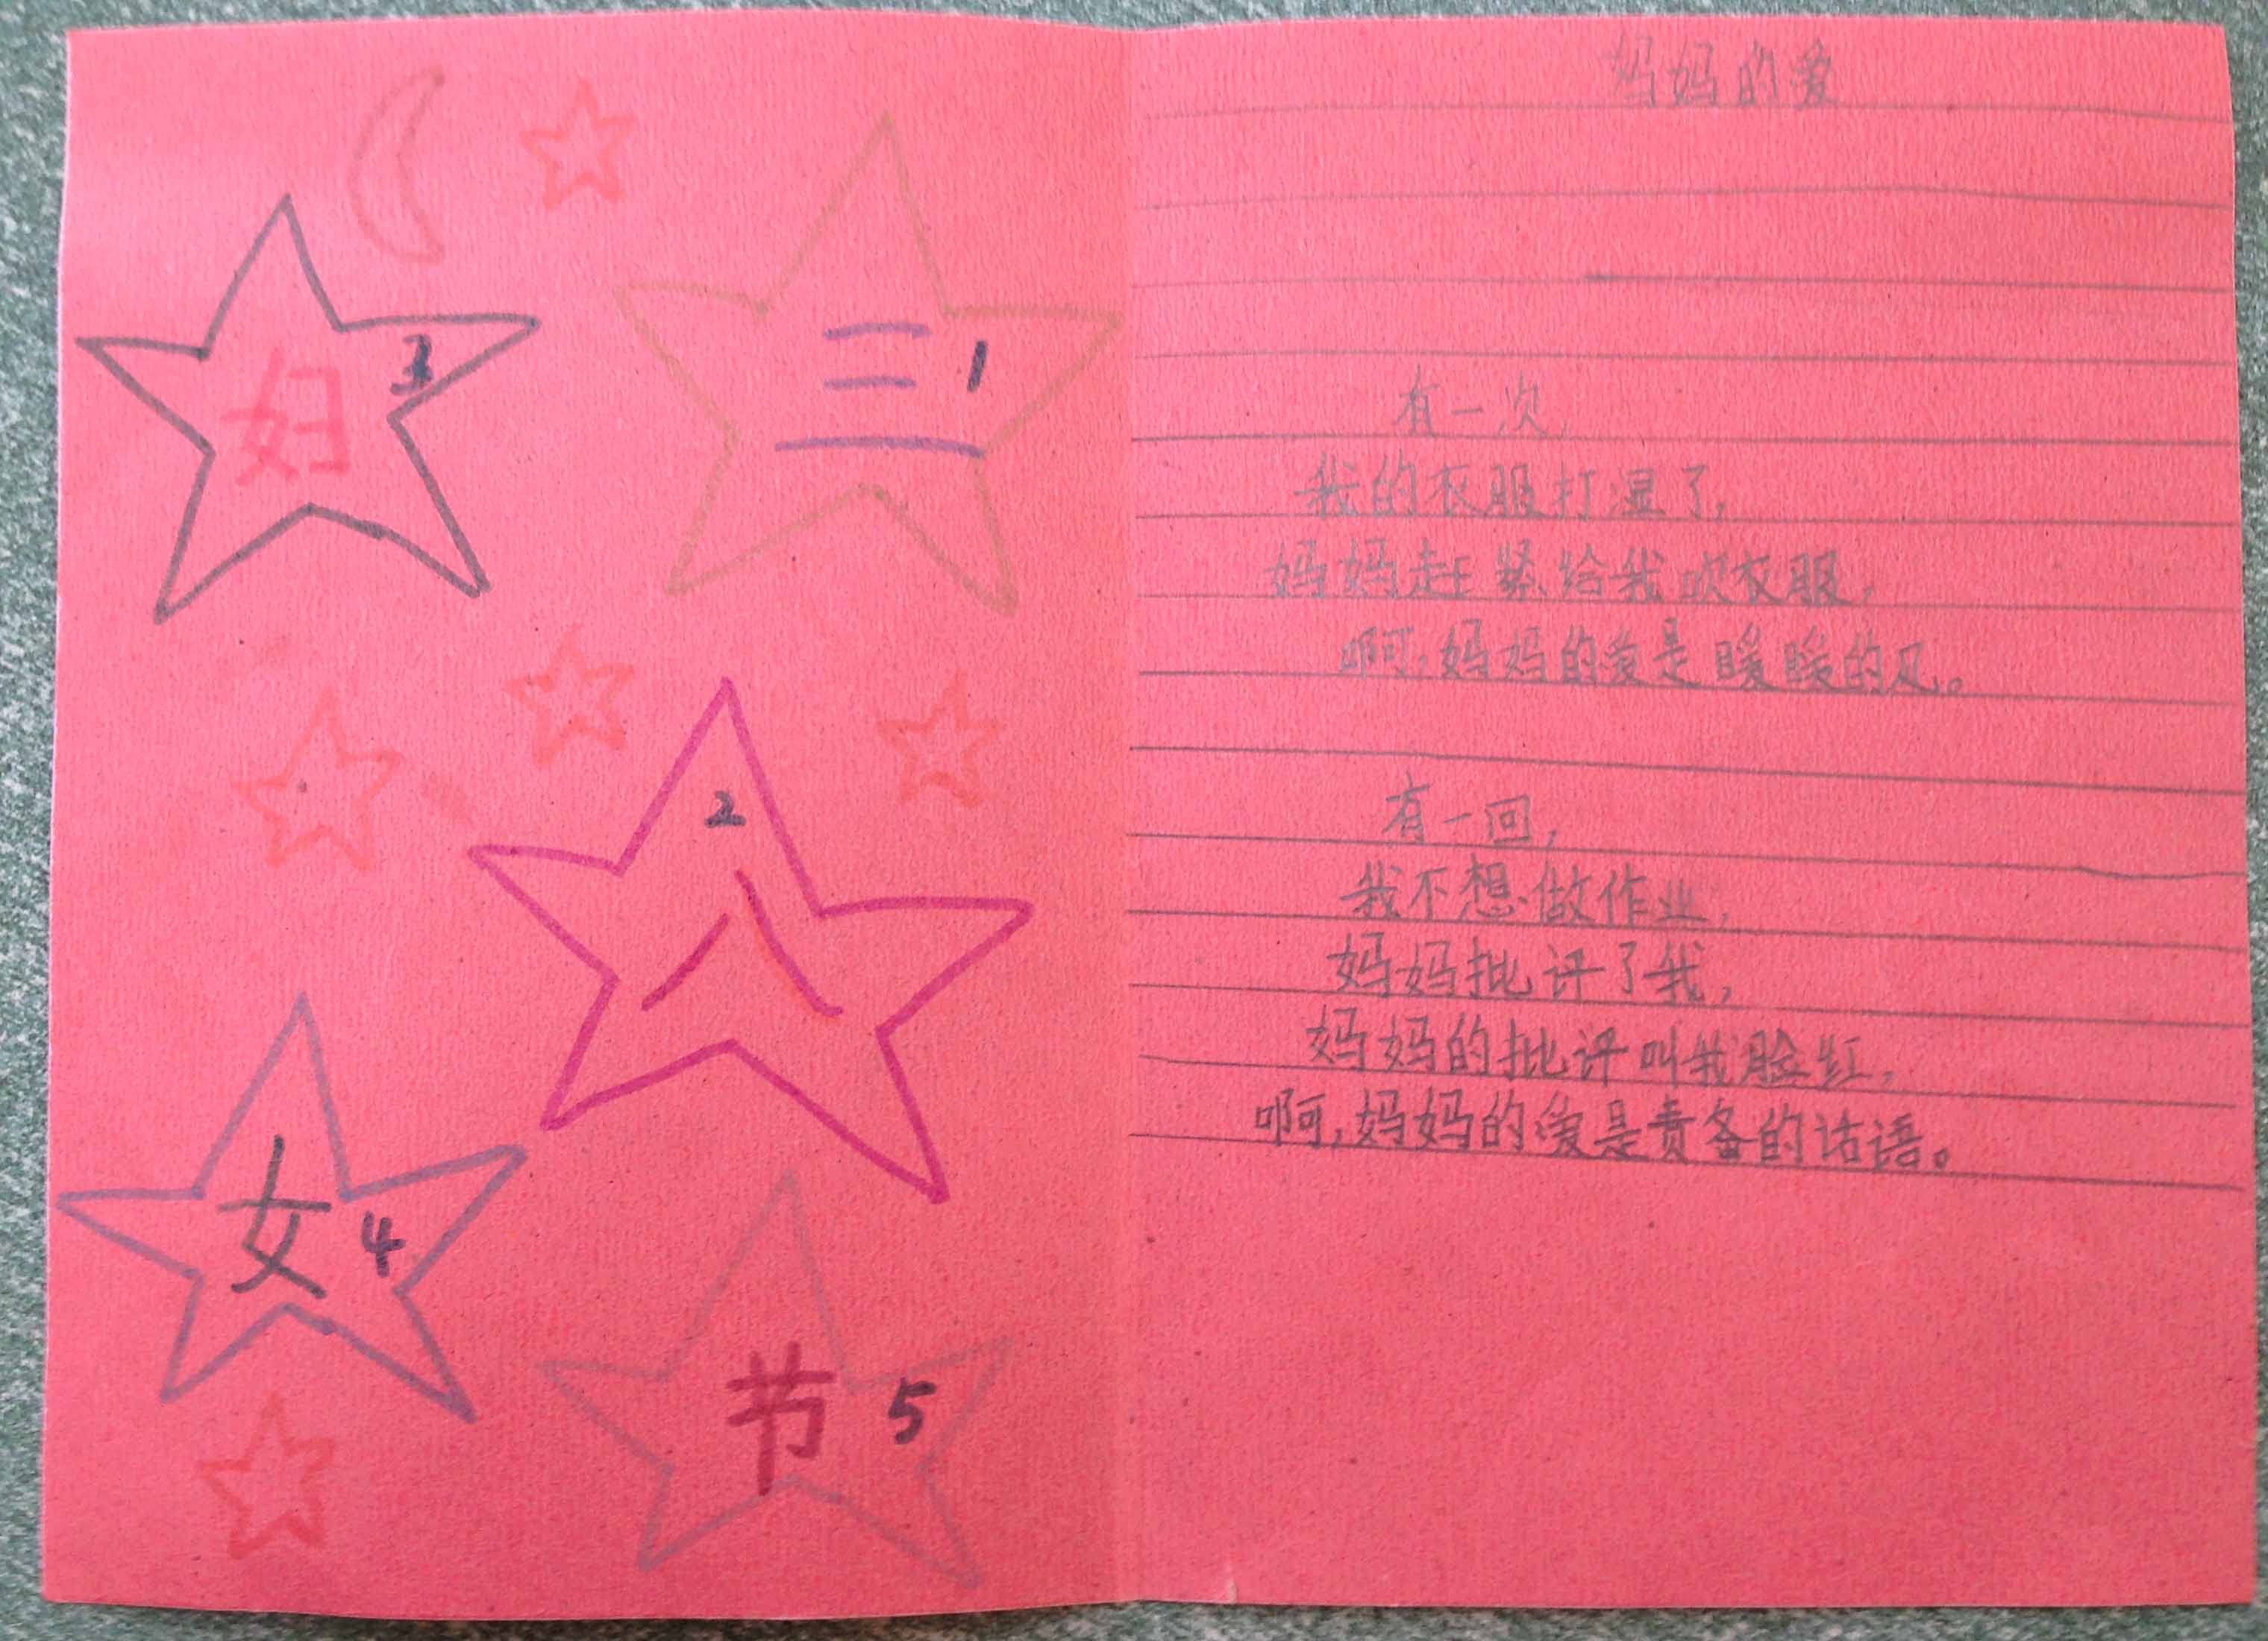 三 1
妇 3
2
八
女 4
节 5
妈妈的爱
有一次,
我的衣服打湿了,
妈妈赶紧给我吹衣服,
啊,妈妈的爱是暖暖的风。
有一回,
我不想做作业,
妈妈批评了我,
妈妈的批评叫我脸红,
啊,妈妈的爱是责备的话语。